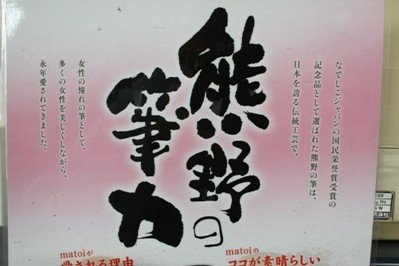 なでしこジャパンの国民栄誉賞受賞の
記念品として選ばれた熊野の筆は、
日本を誇る伝統工芸で、
熊野の
筆力
女性の憧れの筆として、
多くの女性を美しくしながら、
永年愛されてきました。
matoiが
愛される理由
matoiの
ココが素晴らしい